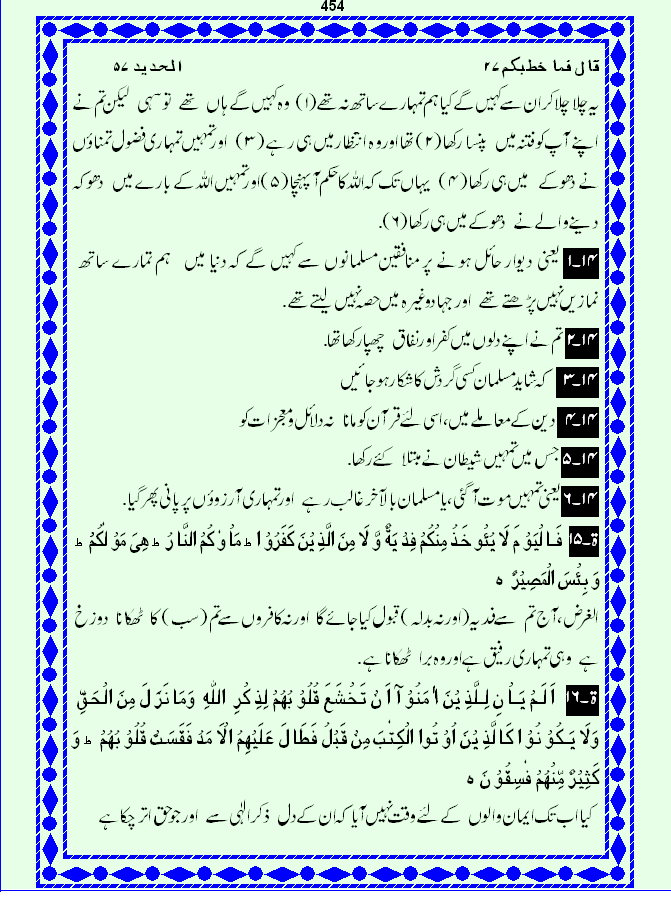 454
قال فما خطبکم ۲۷ الحدید ۵۷
یہ چلا چلا کر ان سے کہیں گے کیا ہم تمہارے ساتھ نہ تھے (۱) وہ کہیں گے ہاں تھے تو سہی لیکن تم نے
اپنے آپ کو فتنہ میں پنسا رکھا (۲) تھا اور وہ انتظار میں ہی رہے (۳) اور تمہیں تمہاری فضول تمناؤں
نے دھوکے میں ہی رکھا (۴) یہاں تک کہ اللہ کا حکم آ پہنچا (۵) اور تمہیں اللہ کے بارے میں دھوکہ
دینے والے نے دھوکے میں ہی رکھا (۶).
۱۴۔۱ یعنی دیوار حائل ہونے پر منافقین مسلمانوں سے کہیں گے کہ دنیا میں ہم تمارے ساتھ
نمازیں نہیں پڑھتے تھے اور جہاد وغیرہ میں حصہ نہیں لیتے تھے.
۱۴۔۲ تم نے اپنے دلوں میں کفر اور نفاق چھپا رکھا تھا.
۱۴۔۳ کہ شاید مسلمان کسی گردش کا شکار ہو جائیں
۱۴۔۴ دین کے معاملے میں، اسی لئے قرآن کو مانا نہ دلائل و معجزات کو
۱۴۔۵ جس میں تمہیں شیطان نے مبتلا کئے رکھا.
۱۴۔۶ یعنی تمہیں موت آ گئی، یا مسلمان بالآخر غالب رہے اور تمہاری آرزوؤں پر پانی پھر گیا.
ة۔۱۵ فَا لْیَوْ مَ لَا یُئْو خَذُ مِنْکُمْ فِدْ یَةٌ وَّ لَا مِنَ الَّذِیْنَ کَفَرُوْ ا ط مَاْ وٰ کُمُ النَّا رُ ط ھِیَ مَوْ لٰکُمْ ط
وَ بِئْسَ الْمَصِیْرُ ہ
الغرض، آج تم سے فدیہ (اور نہ بدلہ) قبول کیا جائے گا اور نہ کافروں سے تم (سب) کا ٹھکانا دوزخ
ہے وہی تمہاری رفیق ہے اور وہ برا ٹھکانا ہے.
ة۔۱۶ اَلَمْ یَاْ نِ لِلَّذِ یْنَ اٰ مَنُوْ آ اَ نْ تَخْشَعَ قُلُوْ بُھُمْ لِذِ کْرِ اللّٰہِ وَمَا نَزَلَ مِنَ الْحَقِّ
وَلَا یَکُوْ نُوْ ا کَا لَّذِ یْنَ اُوْ تُوا الْکِتٰبَ مِنْ قَبْلُ فَطَالَ عَلَیْھِمُ الْاَ مَدُ فَقَسَتْ قُلُوْ بُھُمْ ط وَ
کَثِیْرٌ مِّنْھُمْ فٰسِقُوْ نَ ہ
کیا اب تک ایمان والوں کے لئے وقت نہیں آیا کہ ان کے دل ذکر الٰہی سے اور جو حق اتر چکا ہے